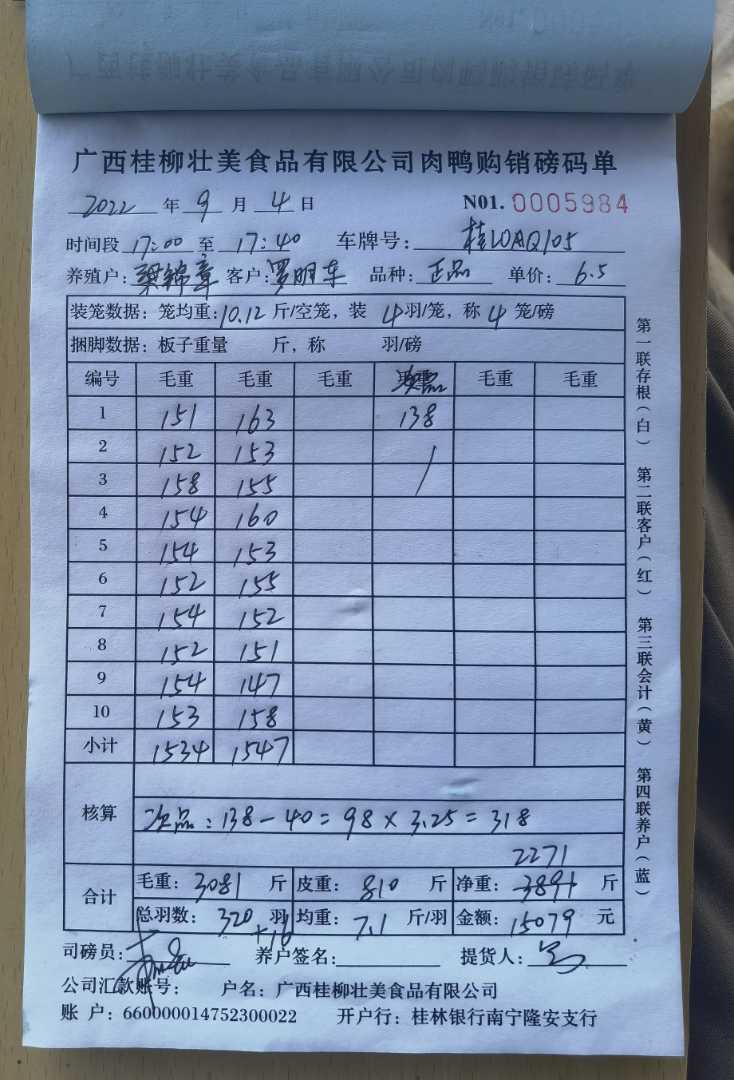 广西桂柳壮美食品有限公司肉鸭购销磅码单
2022 年 9 月 4 日 N01. 0005984
时间段 17:00 至 17:40 车牌号: 桂L0AQ105
养殖户: 梁锦章 客户: 罗明东 品种: 正品 单价: 6.5
装笼数据: 笼均重: 10.12 斤/空笼, 装 4 羽/笼, 称 4 笼/磅
捆脚数据: 板子重量 斤, 称 羽/磅
编号 毛重 毛重 毛重 毛重 毛重
1 151 163 138
2 152 153 /
3 158 155
4 154 160
5 154 153
6 152 155
7 154 152
8 152 151
9 154 147
10 153 158
小计 1534 1547
核算 次品: 138-40=98×3.25=318
2271
合计 毛重: 3081 斤 皮重: 810 斤 净重: 3891 斤
总羽数: 320 羽 均重: 7.1 斤/羽 金额: 15079 元
+16
司磅员: 养户签名: 提货人:
公司汇款账号: 户名: 广西桂柳壮美食品有限公司
账 户: 660000014752300022 开户行: 桂林银行南宁隆安支行
第一联存根(白) 第二联客户(红) 第三联会计(黄) 第四联养户(蓝)